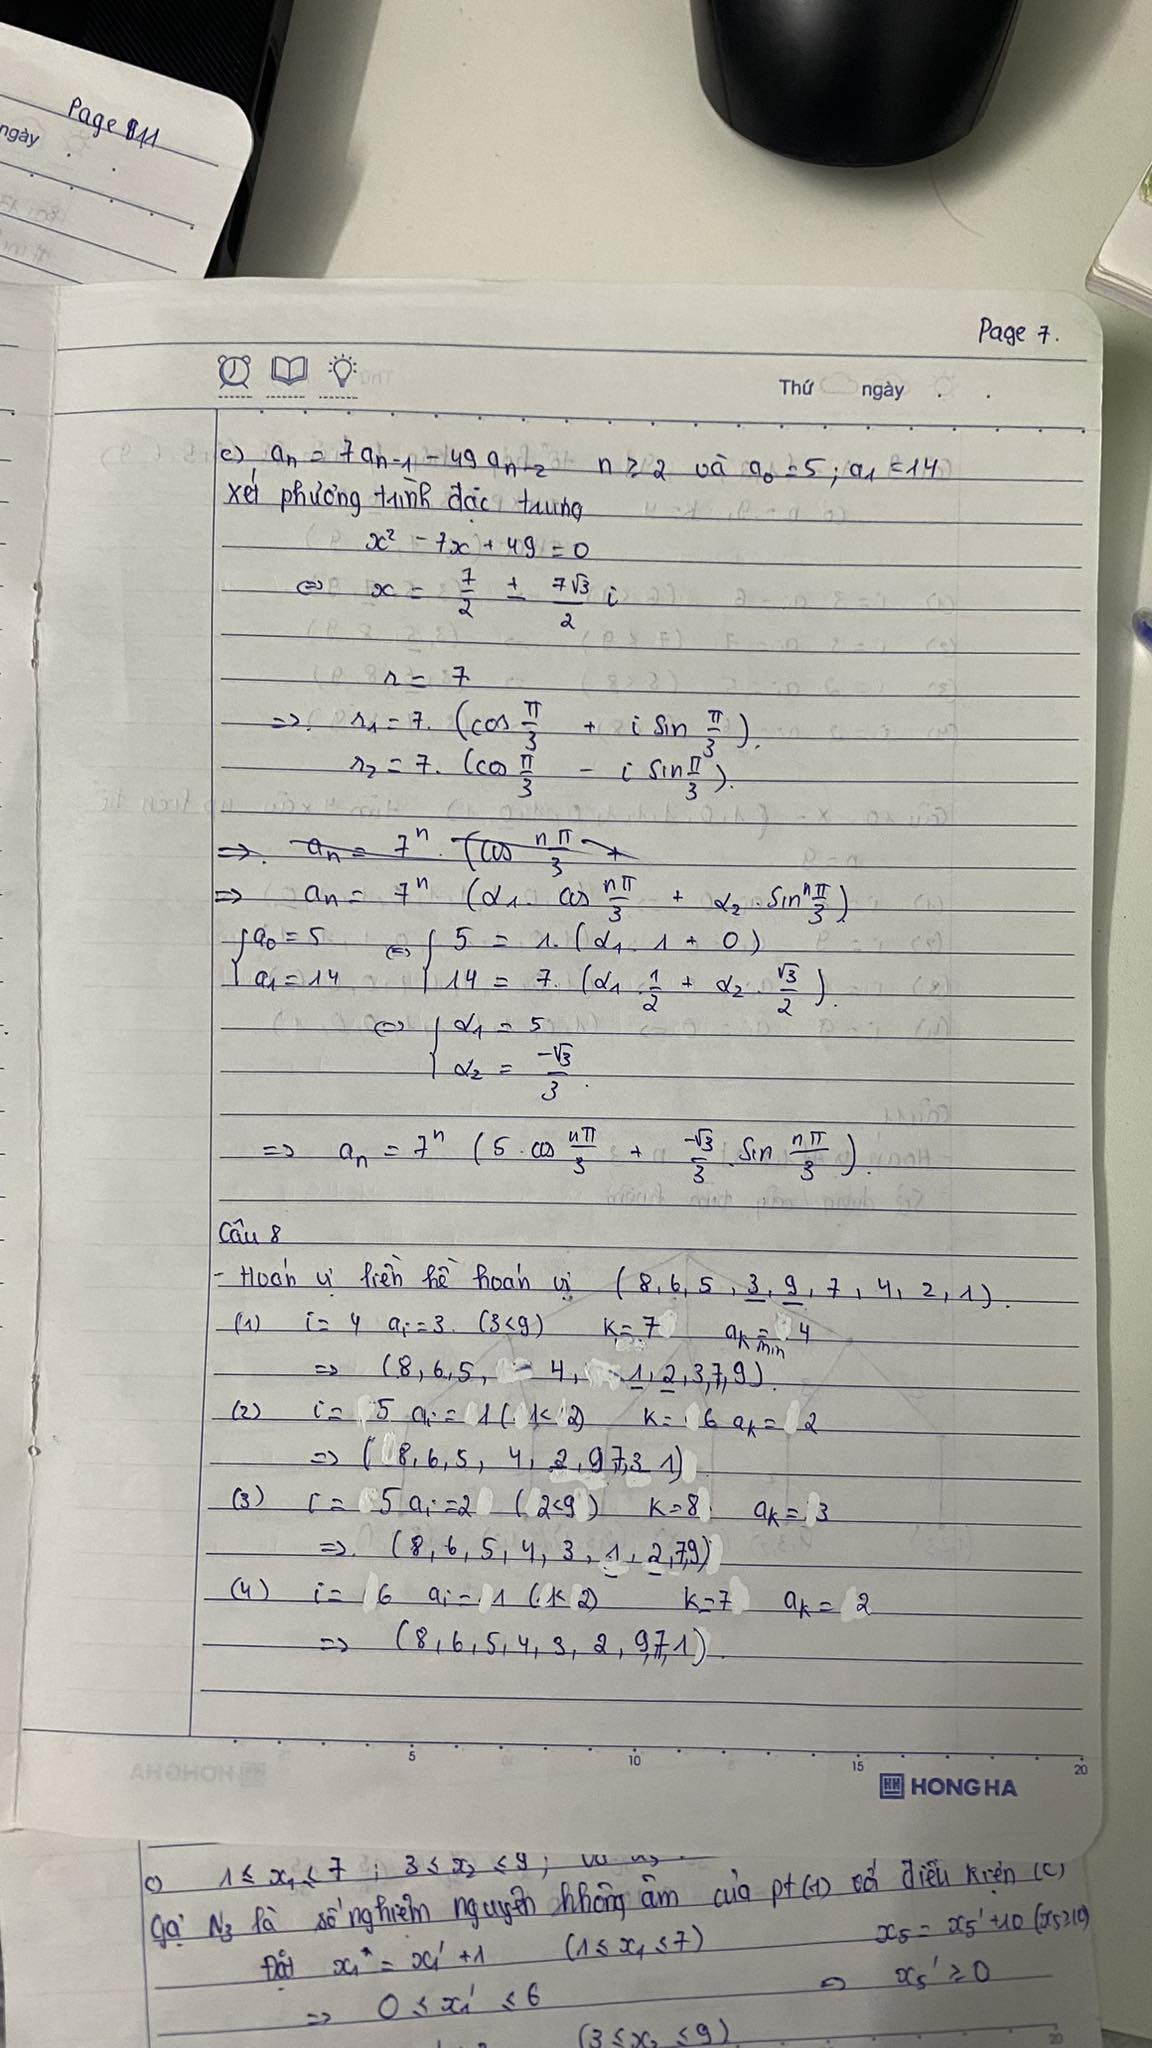 Page 111
ngày
Page 7.
Thứ ngày
c) an = 7an-1 - 49an-2 n ≥ 2 và a0 = 5; a1 = 14
xét phương trình đặc trưng
x² - 7x + 49 = 0
⇔ x = 7/2 ± 7√3/2 i
r = 7
⇒. r1 = 7. (cos π/3 + i sin π/3).
r2 = 7. (cos π/3 - i sin π/3).
⇒. an = 7ⁿ. (cos nπ/3 +
⇒ an = 7ⁿ (α1. cos nπ/3 + α2. sin nπ/3)
{ a0 = 5 ⇔ { 5 = 1. (α1. 1 + 0)
a1 = 14 14 = 7. (α1. 1/2 + α2. √3/2).
⇔ { α1 = 5
α2 = -√3/3.
⇒ an = 7ⁿ (5. cos nπ/3 + -√3/3. sin nπ/3).
Câu 8
- Hoán vị liền kề hoán vị (8, 6, 5, 3, 9, 7, 4, 2, 1).
(1) i = 4 ai = 3. (3<9) k = 7 ak min = 4
⇒ (8, 6, 5, 4, 1, 2, 3, 7, 9).
(2) i = 5 ai = 1 (1< 2) k = 6 ak = 2
⇒ (8, 6, 5, 4, 2, 9, 7, 3, 1)
(3) i = 5 ai = 2 (2<9) k = 8 ak = 3
⇒. (8, 6, 5, 4, 3, 1, 2, 7, 9)
(4) i = 6 ai = 1 (1< 2) k = 7 ak = 2
⇒ (8, 6, 5, 4, 3, 2, 9, 7, 1).
5 10 15 20
HONG HA
c) 1 ≤ x1 ≤ 7 ; 3 ≤ x2 ≤ 9;
Gọi N3 là số nghiệm nguyên không âm của pt (1) có điều kiện (c)
Đặt x1 = x1' + 1 (1 ≤ x1 ≤ 7) x5 = x5' + 10 (x5≥10)
⇒ 0 ≤ x1' ≤ 6 ⇒ x5' ≥ 0
(3 ≤ x2 ≤ 9)
20